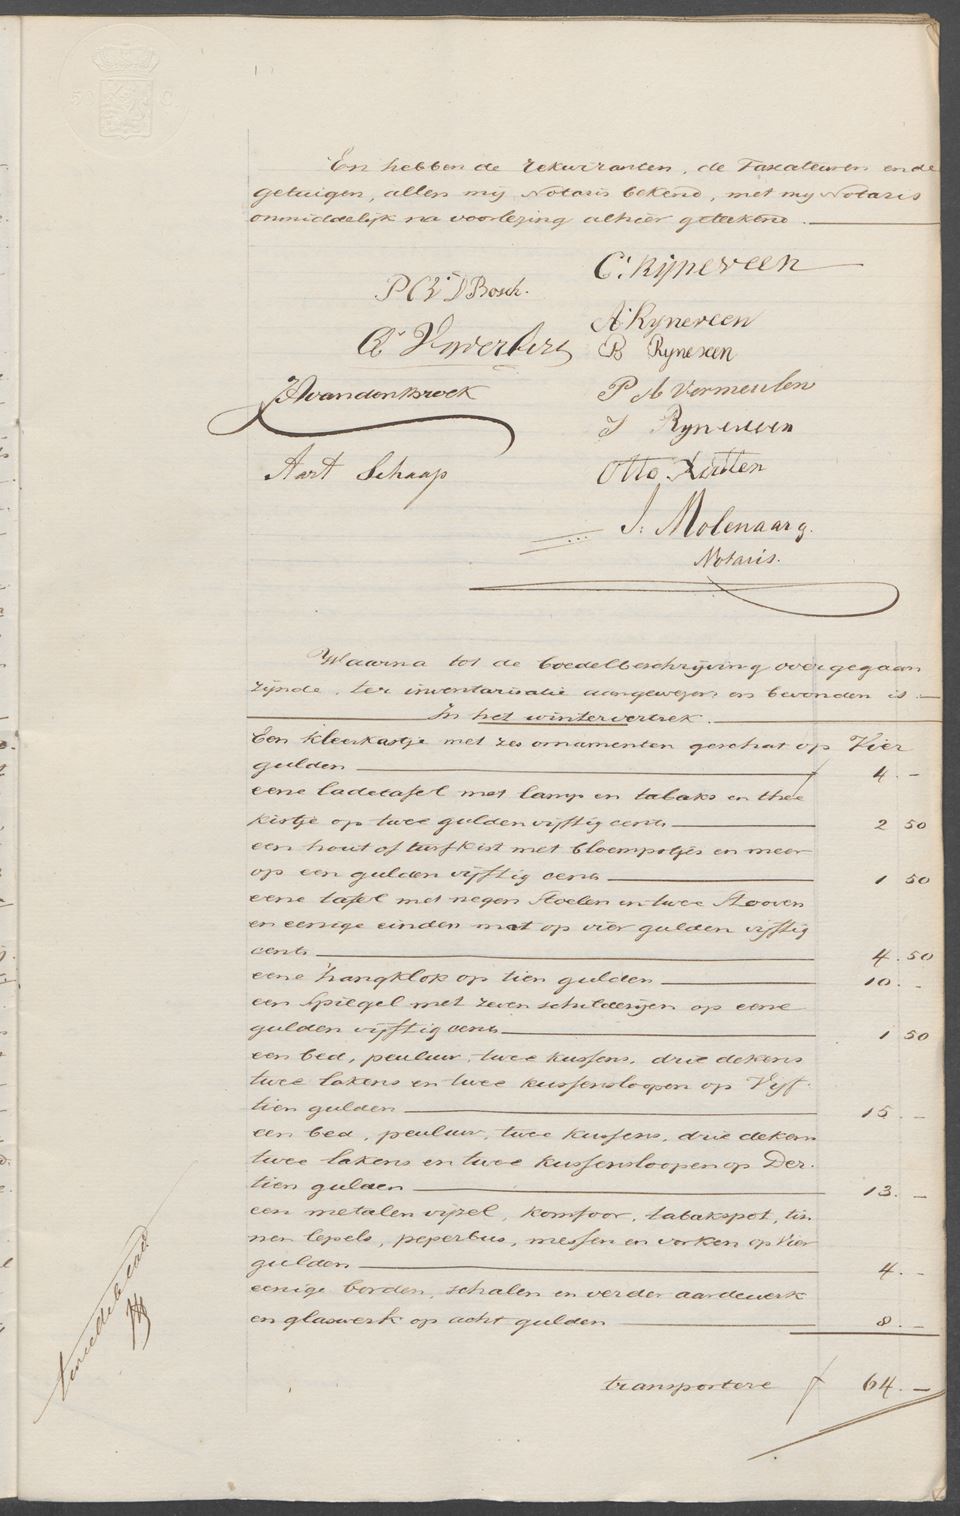 En hebben de rekwiranten, de Taxateuren en de
getuigen, allen mij Notaris bekend, met mij Notaris
onmiddelijk na voorlezing alhier getekend.
P C V D Bosch.
C: Rijneveen
A Rijneveen
B Ryneveen
JA van den Broek
P A Vermeulen
J Ryneveen
Aart Schaap
Otto
J: Molenaar
Notaris.
Waarna tot de boedelbeschrijving overgegaan
zijnde, ter inventarisatie aangewezen en bevonden is.
In het wintervertrek.
Een kleerkastje met zes ornamenten geschat op Vier
gulden f 4. -
eene ladetafel met lamp en tabaks en thee
kistje op twee gulden vijftig cents 2 50
een hout of turfkist met bloempotjes en meer
op een gulden vijftig cents 1 50
eene tafel met negen stoelen en twee stooven
en eenige einden mat op vier gulden vijftig
cents 4. 50
eene hangklok op tien gulden 10. -
een spiegel met zeven schilderijen op eene
gulden vijftig cents 1 50
een bed, peuluw, twee kussens, drie dekens
twee lakens en twee kussensloopen op Vijf-
tien gulden 15. -
een bed, peuluw, twee kussens, drie dekens
twee lakens en twee kussensloopen op Der-
tien gulden 13. -
een metalen vijzel, komfoor, tabakspot, tin
nen lepels, peperbus, messen en vorken op Vier
gulden 4. -
eenige borden, schalen en verder aardewerk
en glaswerk op acht gulden 8. -
transportere f 64. -
tweede blad